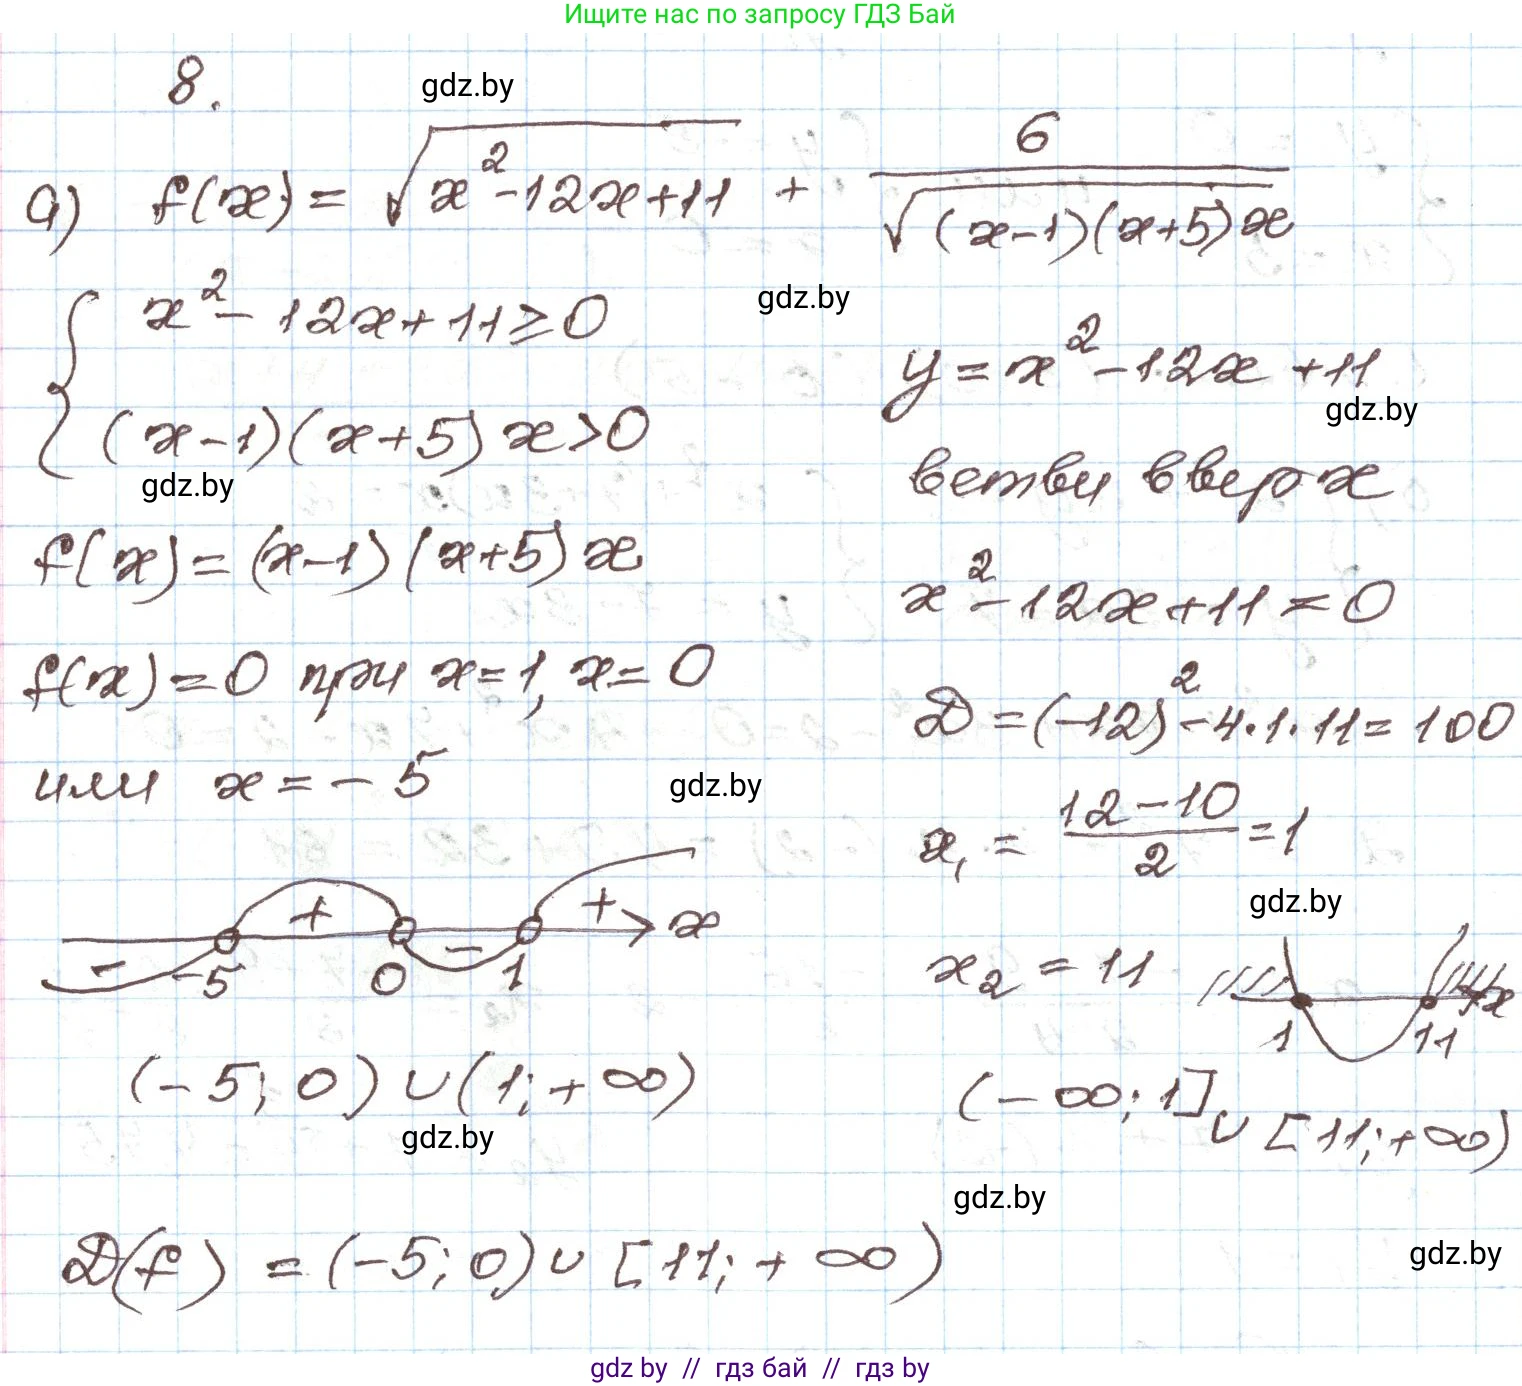 Ищите нас по запросу ГДЗ Бай
8.
gdz.by
а) f(x) = √(x² - 12x + 11) + 6 / √((x-1)(x+5)x)
{ x² - 12x + 11 ≥ 0
(x-1)(x+5)x > 0
gdz.by
f(x) = (x-1)(x+5)x
f(x) = 0 при x = 1, x = 0
или x = -5
gdz.by
- + - + x
-5 0 1
(-5; 0) ∪ (1; +∞)
gdz.by
gdz.by
y = x² - 12x + 11
gdz.by
ветви вверх
x² - 12x + 11 = 0
D = (-12)² - 4·1·11 = 100
x₁ = (12 - 10) / 2 = 1
gdz.by
x₂ = 11
x
1 11
(-∞; 1] ∪ [11; +∞)
gdz.by
D(f) = (-5; 0) ∪ [11; +∞)
gdz.by
gdz by // гдз бай // гдз by